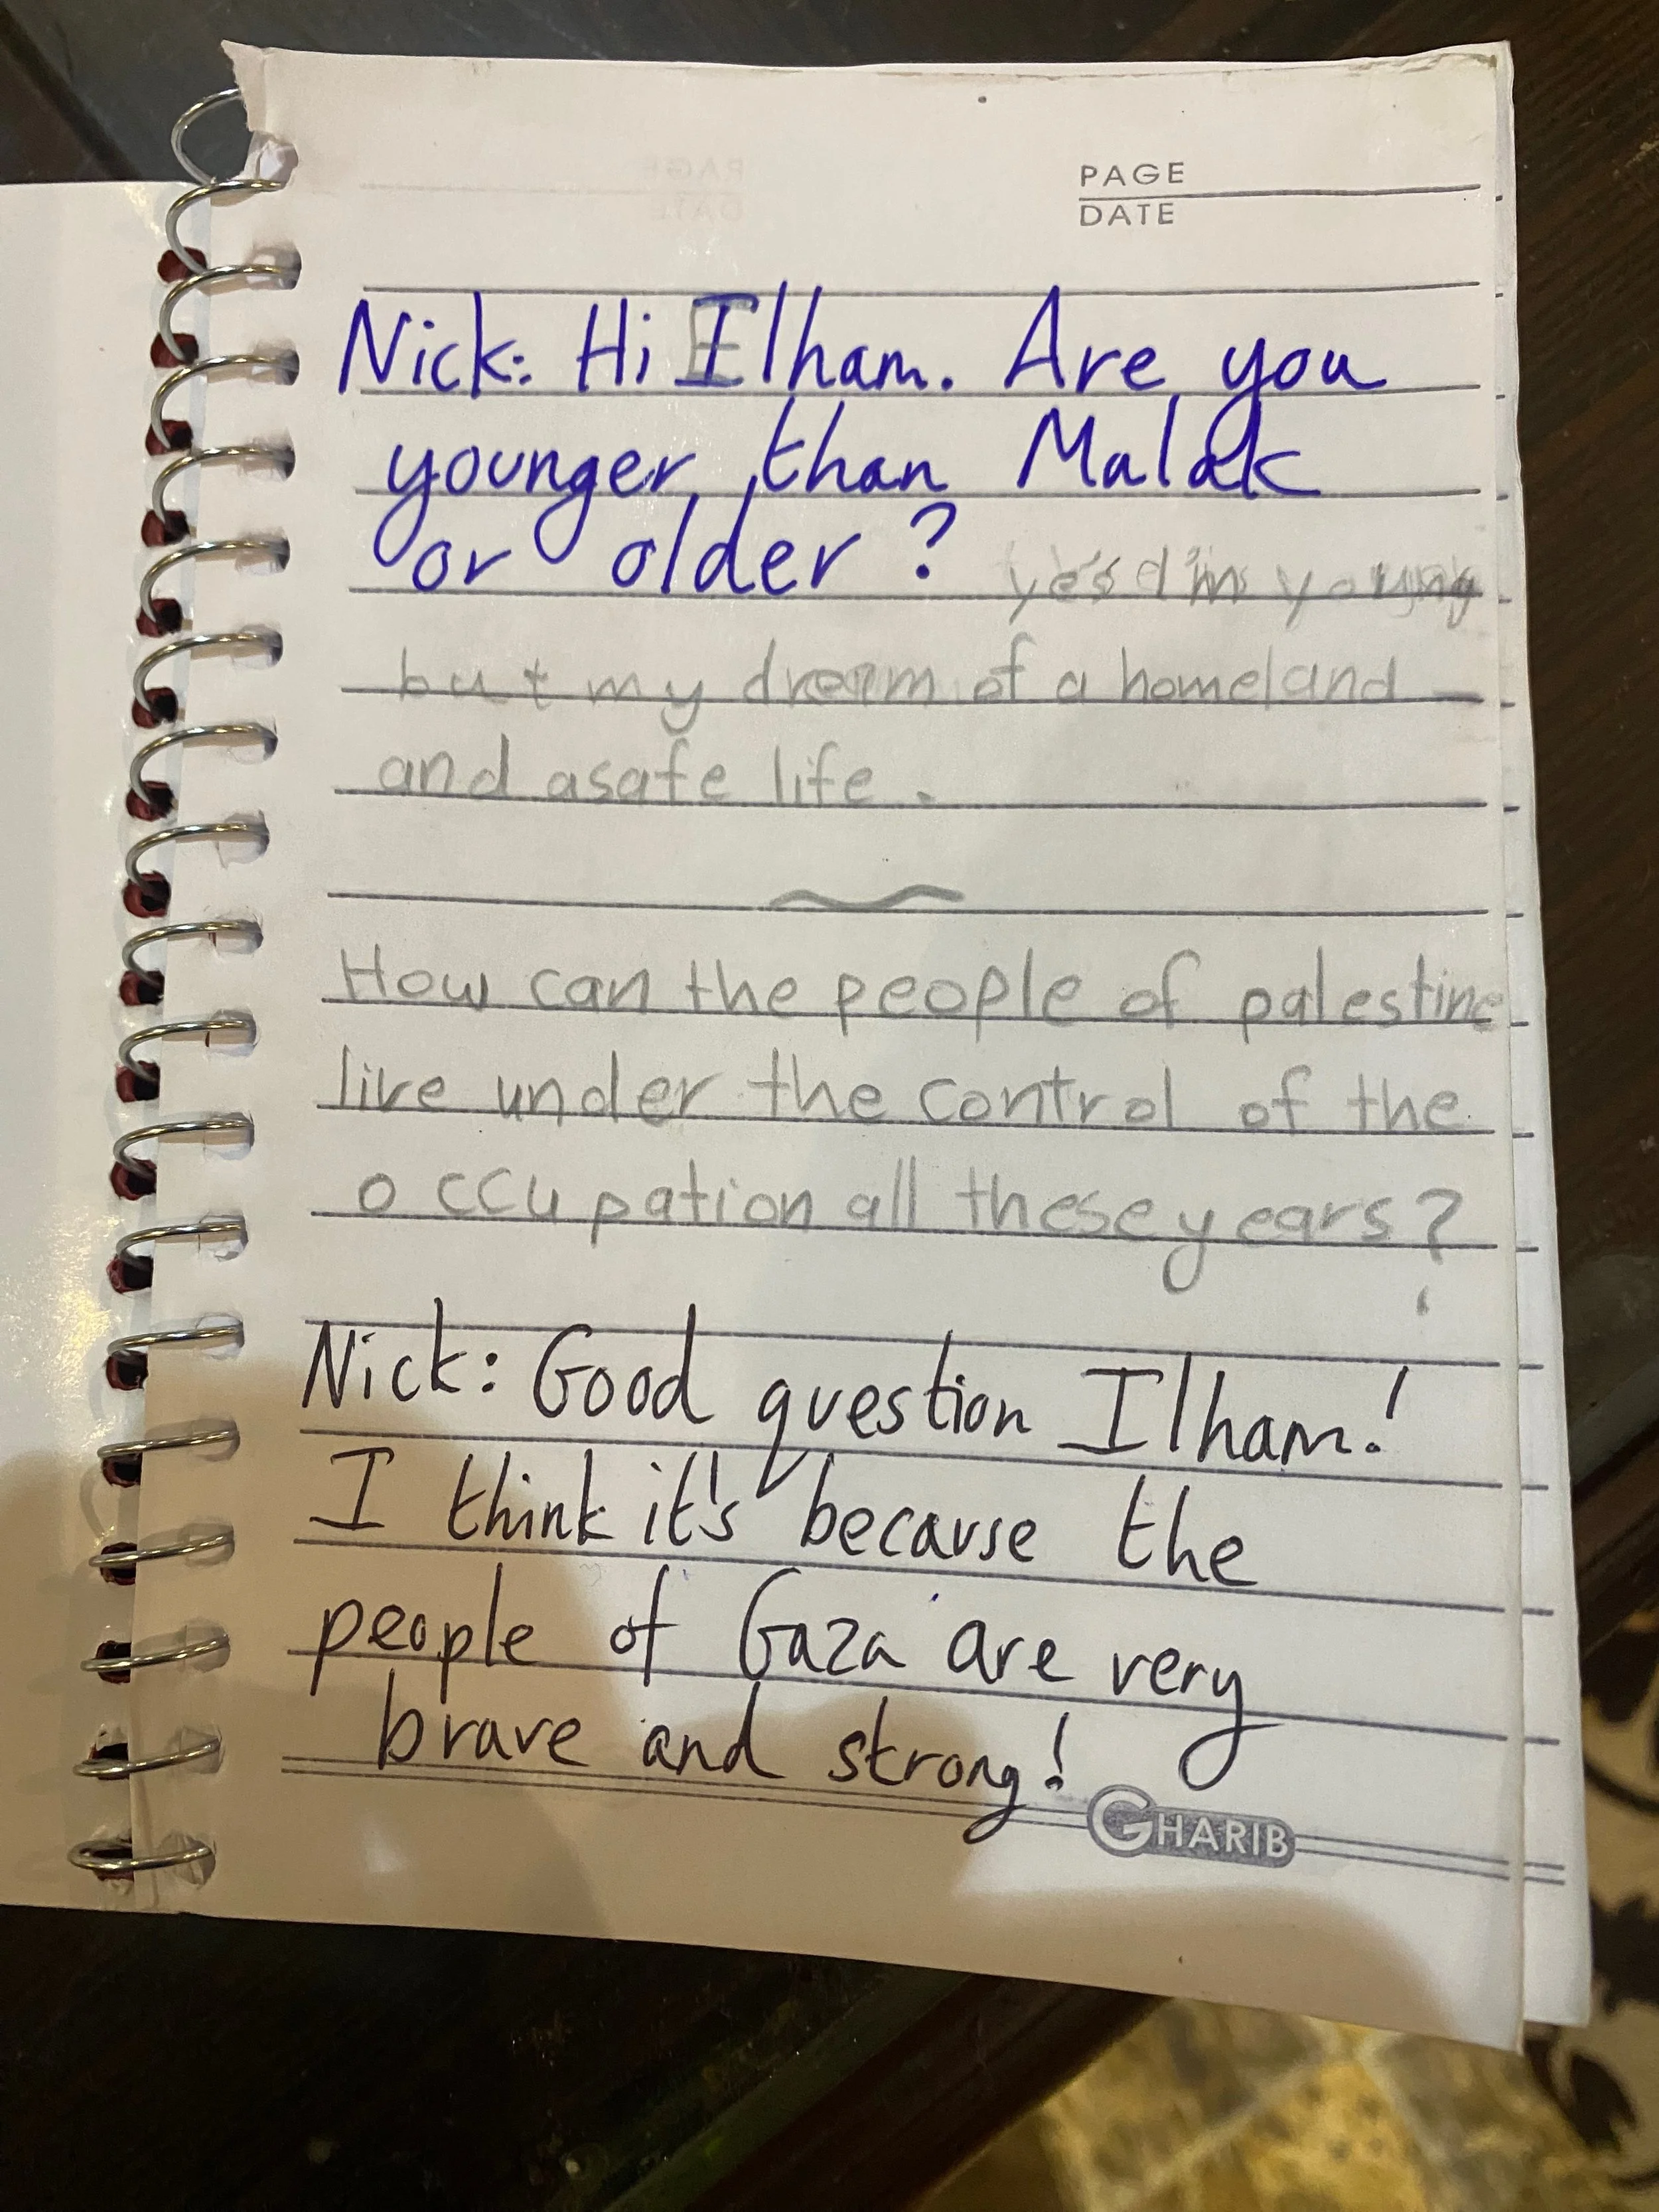 PAGE
DATE
Nick: Hi Ilham. Are you
younger than Malak
or older? yes I'm young
but my dream of a homeland
and asafe life.
How can the people of palestine
live under the control of the
occupation all these years?
Nick: Good question Ilham!
I think it's because the
people of Gaza are very
brave and strong!
GHARIB